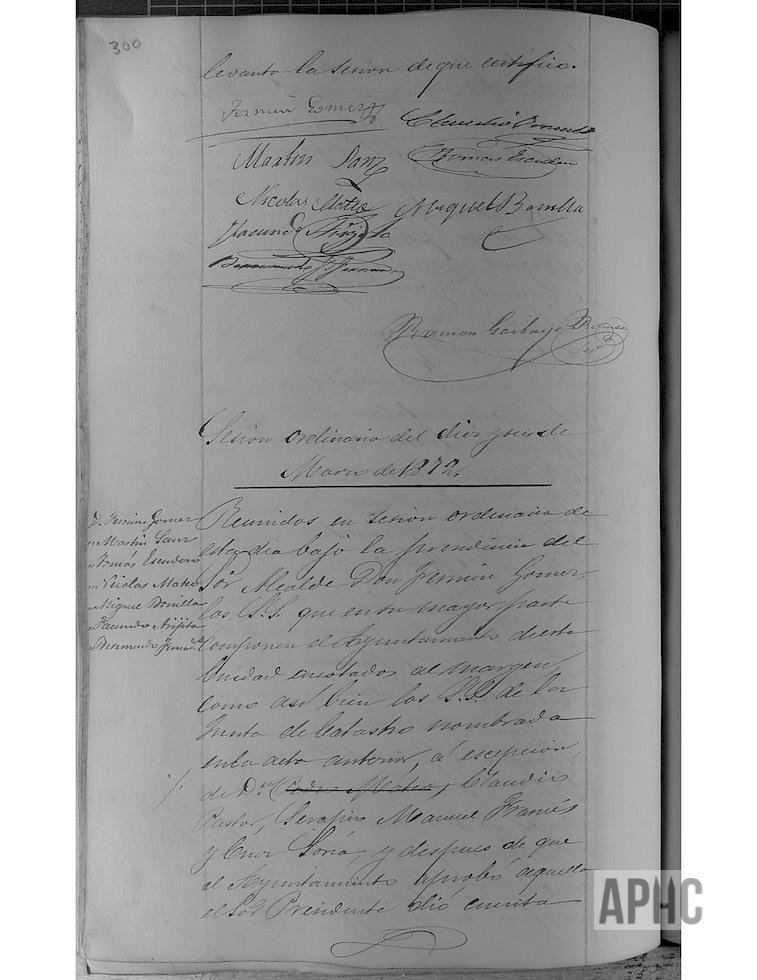 300
levanta la sesion de que certifico.
Fermin Gomez
Claudio
Martin Sanz
Tomas Escudero
Nicolas Mateo
Miguel Bonilla
Facundo Arijita
Beremundo J. Fernand
Ramon Garbayo
Srio
Sesion ordinaria del dies y seis de
Marzo de 1872.
D. Fermin Gomez
" Martin Sanz
" Tomás Escudero
" Nicolas Mateo
" Miguel Bonilla
" Facundo Arijita
" Beremundo Fernadz
Reunidos en sesion ordinaria de
este dia bajo la presidencia del
Sor Alcalde Don Fermin Gomez,
los S.S. que en su mayor parte
componen el Ayuntamiento de esta
Ciudad anotados al margen,
como asi bien los S.S. de la
Junta de Catastro nombrada
en la acta anterior, á escepcion,
de Dn Pedro Mateo, Claudio
Pastor, Serafin Manuel Francés
y Cruz Soria, y despues de que
el Ayuntamiento aprobó aquella
el Sor Presidente dió cuenta
APHC